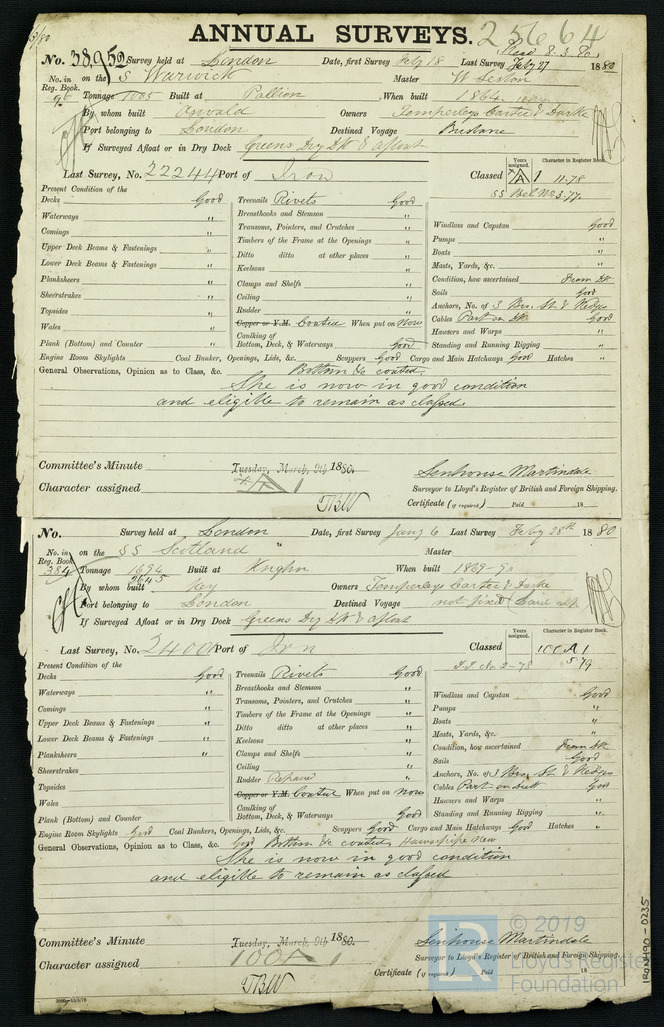 ANNUAL SURVEYS. 25664
Read 8.3.80
No. 38952 Survey held at London Date, first Survey Feby 18 Last Survey Feby 27 1880
No. in Reg. Book. on the S Warwick Master W Seston
96 Tonnage 1005 Built at Pallion When built 1864
By whom built Oswald Owners Temperleys Carter & Darke
Port belonging to London Destined Voyage Brisbane
If Surveyed Afloat or in Dry Dock Greens Dry Dk & afloat
Last Survey, No. 22244 Port of Iron Classed Years assigned. Character in Register Book. A 1 11.78
SS Bel No 3.77.
Present Condition of the
Decks Good
Waterways "
Comings "
Upper Deck Beams & Fastenings "
Lower Deck Beams & Fastenings "
Planksheers "
Sheerstrakes "
Topsides "
Wales "
Plank (Bottom) and Counter "
Treenails Rivets Good
Breasthooks and Stemson "
Transoms, Pointers, and Crutches "
Timbers of the Frame at the Openings "
Ditto ditto at other places "
Keelsons "
Clamps and Shelfs "
Ceiling "
Rudder "
Copper or Y.M. Coated When put on Now
Caulking of Bottom, Deck, & Waterways Good
Windlass and Capstan Good
Pumps "
Boats "
Masts, Yards, &c. "
Condition, how ascertained From Dk
Sails Good
Anchors, No. of 3 Brs. St & Kedges
Cables Part on Dk Good
Hawsers and Warps "
Standing and Running Rigging "
Engine Room Skylights Coal Bunker, Openings, Lids, &c. Scuppers Good Cargo and Main Hatchways Good Hatches "
General Observations, Opinion as to Class, &c. Bottom &c coated.
She is now in good condition
and eligible to remain as classed.
Committee's Minute Tuesday, March, 9th 1880.
Senhouse Martindale
Character assigned A 1 Surveyor to Lloyd's Register of British and Foreign Shipping.
TBW Certificate (if required) Paid 18
No. Survey held at London Date, first Survey Jany 6 Last Survey Feby 28th 1880
No. in Reg. Book. on the SS Scotland Master
384 Tonnage 1694 2645 Built at Knghn When built 1869-9
By whom built Key Owners Temperleys Carter & Darke
Port belonging to London Destined Voyage not fixed Laid up
If Surveyed Afloat or in Dry Dock Greens Dry Dk & afloat
Last Survey, No. 2400 Port of Iron Classed Years assigned. Character in Register Book. 100 A 1
5 79
No 2-78
Present Condition of the
Decks Good
Waterways "
Comings "
Upper Deck Beams & Fastenings "
Lower Deck Beams & Fastenings "
Planksheers "
Sheerstrakes
Topsides
Wales
Plank (Bottom) and Counter
Treenails Rivets Good
Breasthooks and Stemson "
Transoms, Pointers, and Crutches "
Timbers of the Frame at the Openings "
Ditto ditto at other places "
Keelsons "
Clamps and Shelfs "
Ceiling "
Rudder Repaired
Copper or Y.M. Coated When put on Now
Caulking of Bottom, Deck, & Waterways Good
Windlass and Capstan Good
Pumps "
Boats "
Masts, Yards, &c. "
Condition, how ascertained From Dk
Sails Good
Anchors, No. of 3 Brs. St & Kedges
Cables Part on deck Good
Hawsers and Warps "
Standing and Running Rigging "
Engine Room Skylights Good Coal Bunkers, Openings, Lids, &c. Good Scuppers Good Cargo and Main Hatchways Good Hatches "
General Observations, Opinion as to Class, &c. Bottom &c coated, Hawsepipe new
She is now in good condition
and eligible to remain as classed
Committee's Minute Tuesday, March, 9th 1880.
Senhouse Martindale
Character assigned 100 A 1 Surveyor to Lloyd's Register of British and Foreign Shipping.
TBW Certificate (if required) Paid 18
IRON490-0235
LR © 2019
Lloyd's Register
Foundation